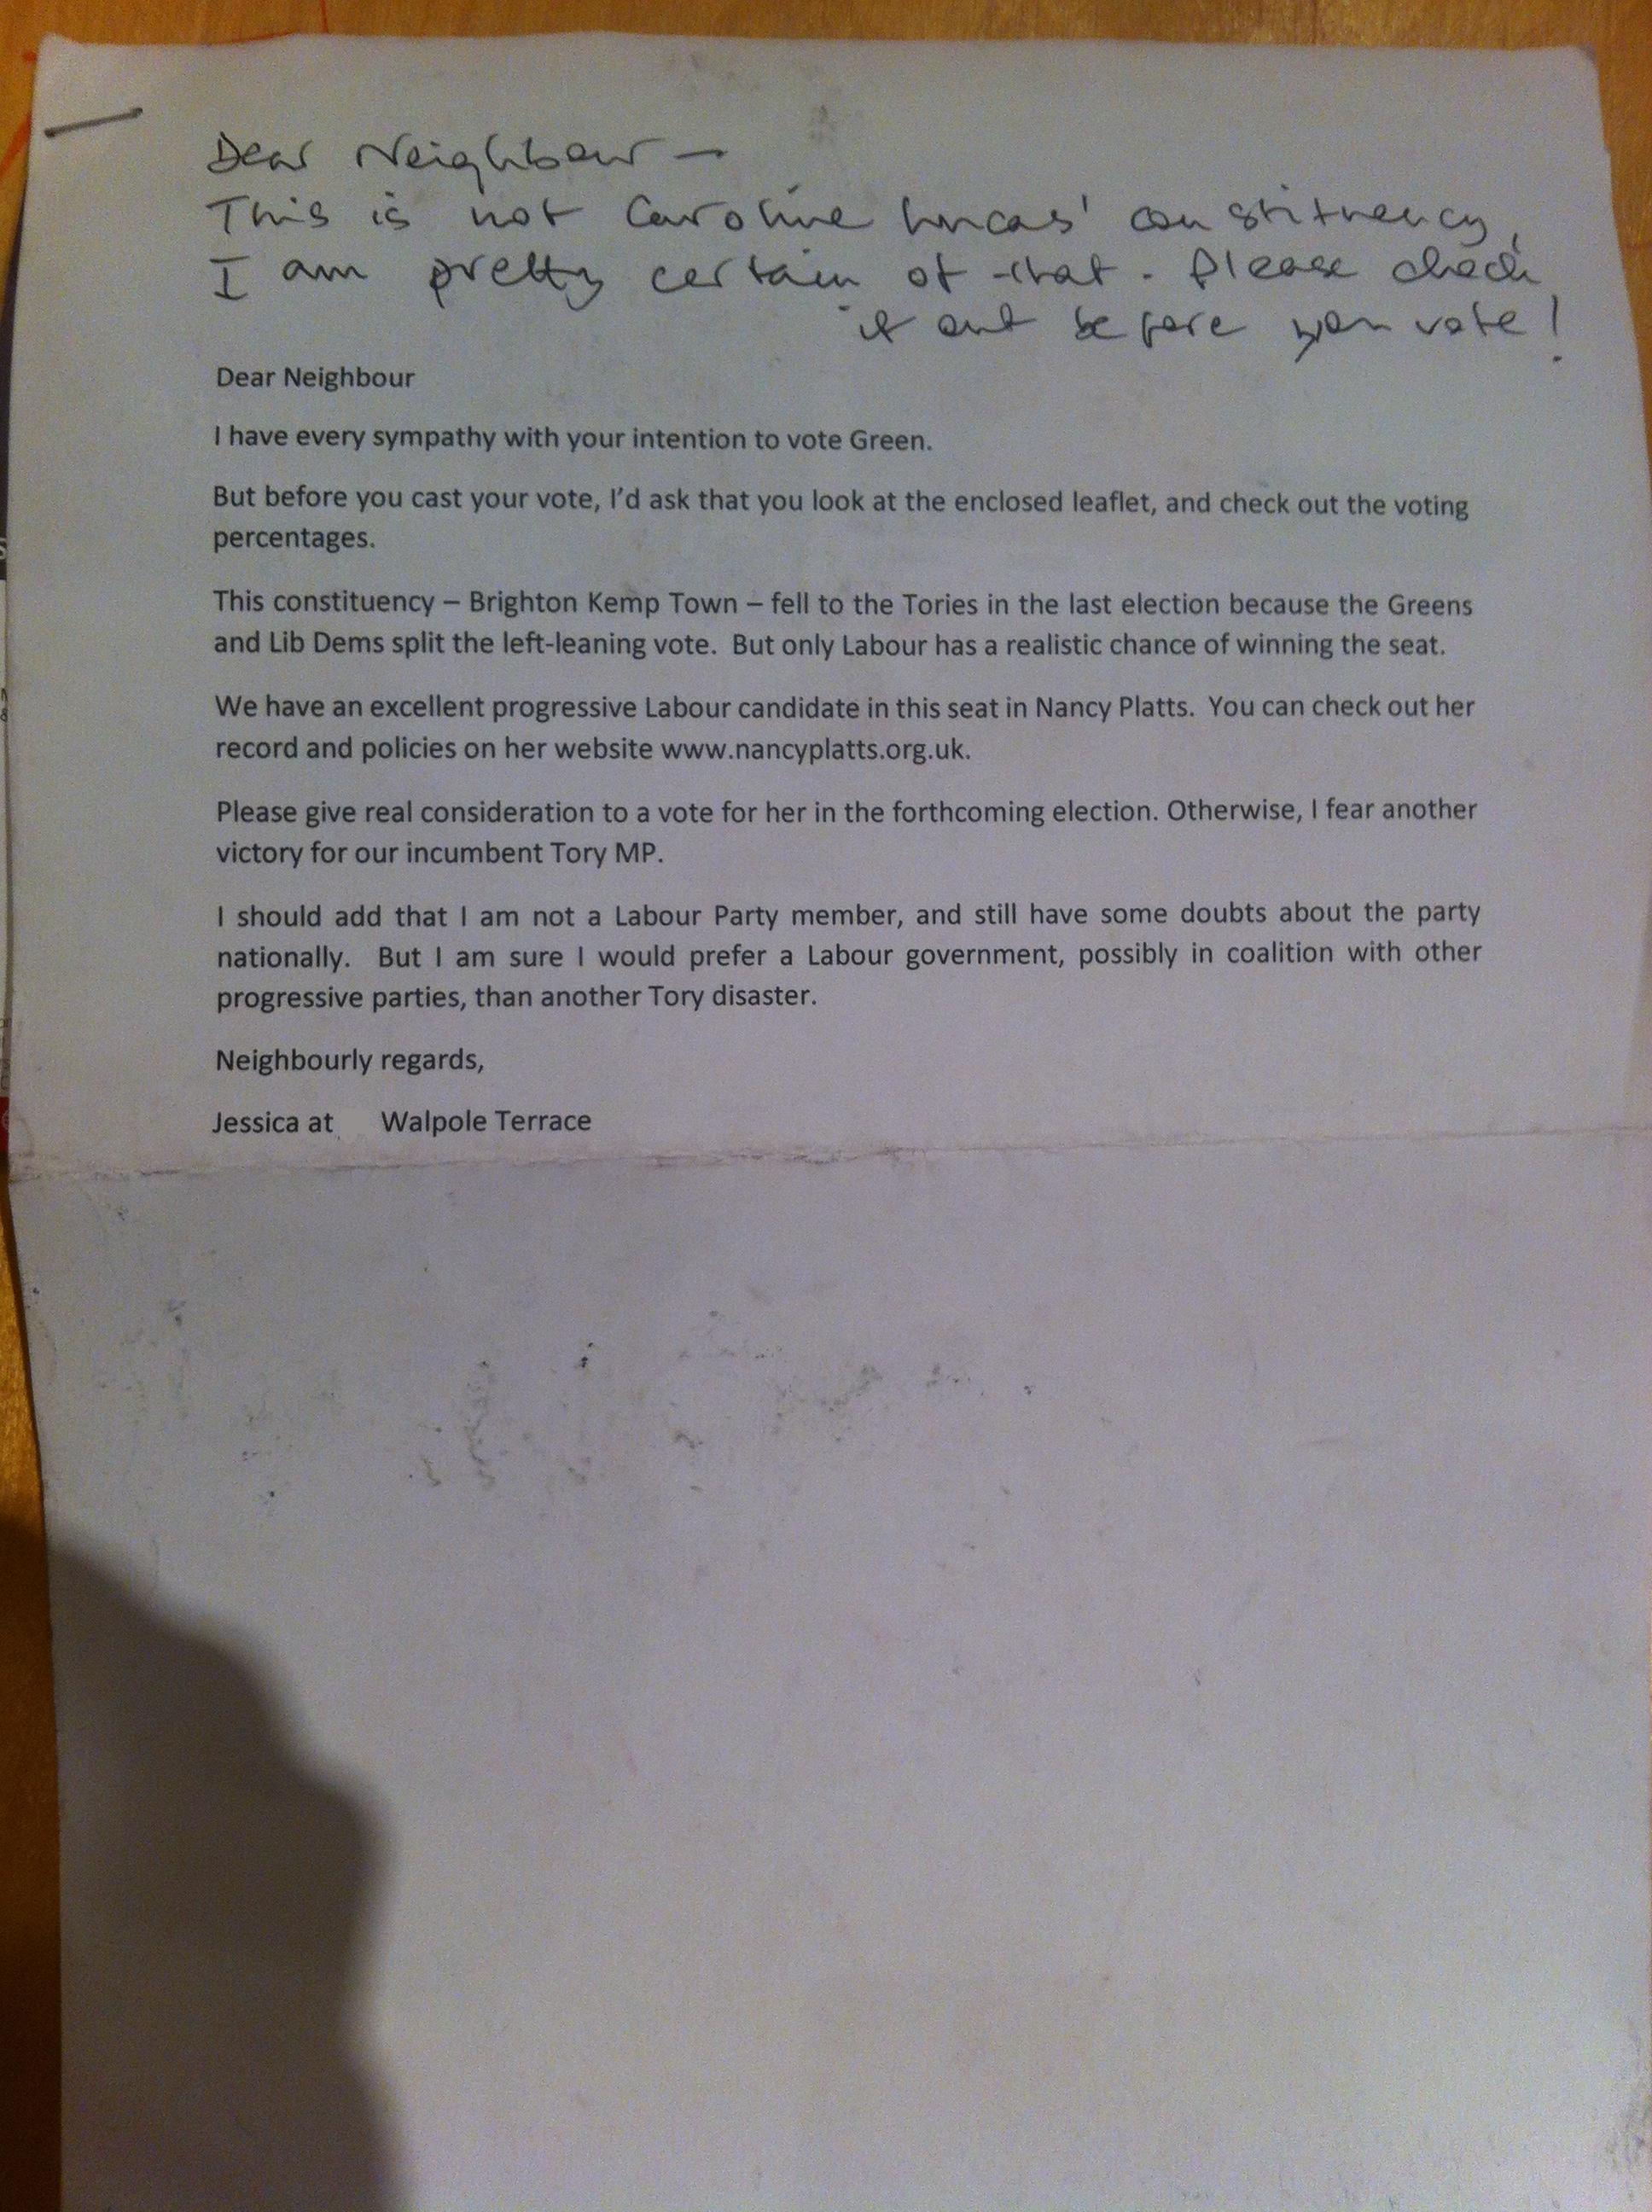 Dear Neighbour –
This is not Caroline Lucas' constituency,
I am pretty certain of that. Please check
it out before you vote!
Dear Neighbour
I have every sympathy with your intention to vote Green.
But before you cast your vote, I'd ask that you look at the enclosed leaflet, and check out the voting
percentages.
This constituency – Brighton Kemp Town – fell to the Tories in the last election because the Greens
and Lib Dems split the left-leaning vote.  But only Labour has a realistic chance of winning the seat.
We have an excellent progressive Labour candidate in this seat in Nancy Platts.  You can check out her
record and policies on her website www.nancyplatts.org.uk.
Please give real consideration to a vote for her in the forthcoming election. Otherwise, I fear another
victory for our incumbent Tory MP.
I should add that I am not a Labour Party member, and still have some doubts about the party
nationally.  But I am sure I would prefer a Labour government, possibly in coalition with other
progressive parties, than another Tory disaster.
Neighbourly regards,
Jessica at Walpole Terrace